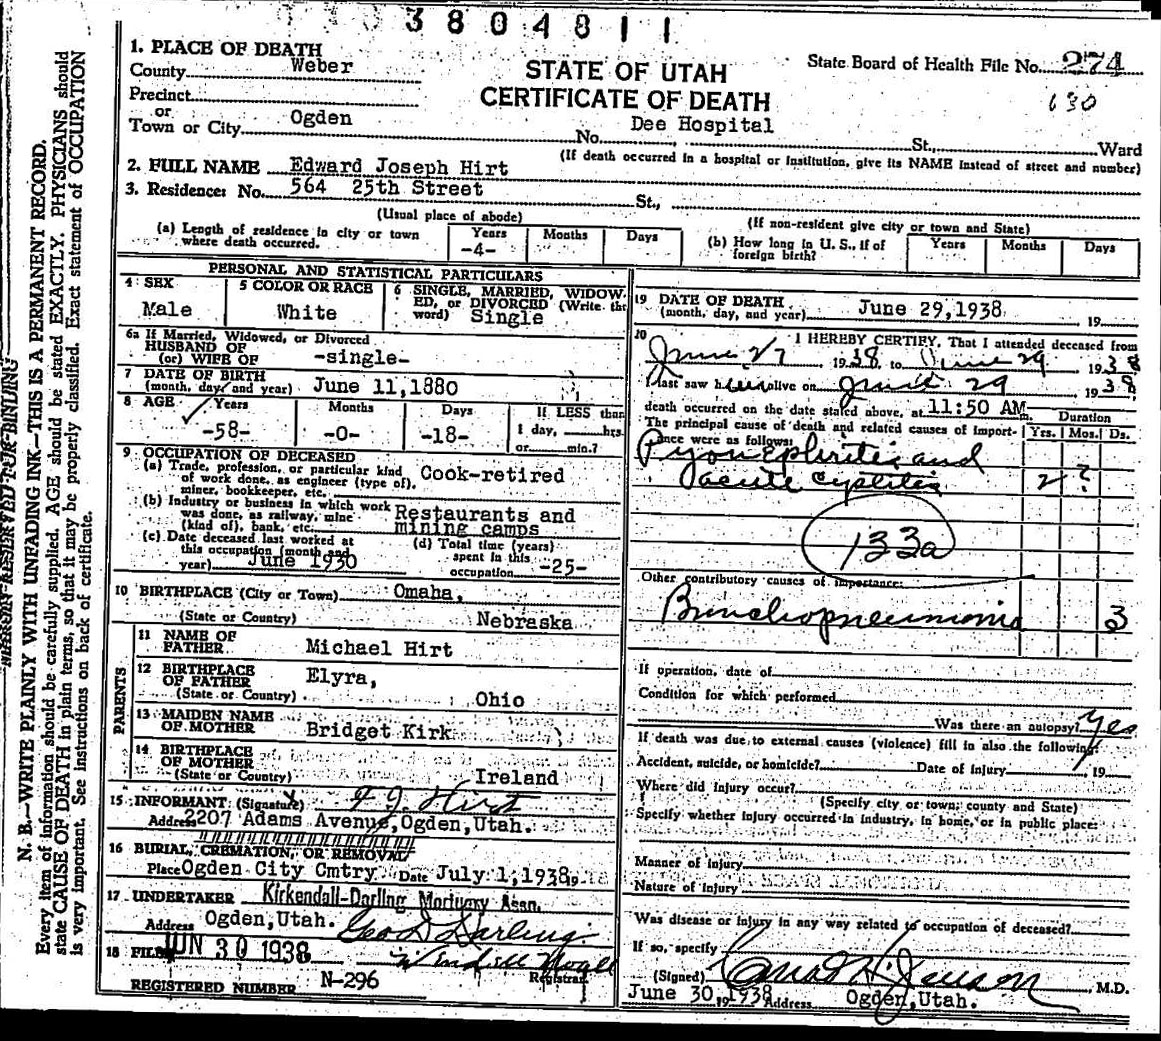 3804811
1. PLACE OF DEATH
County Weber
STATE OF UTAH
State Board of Health File No. 274
Precinct
CERTIFICATE OF DEATH
130
or
Town or City Ogden No. Dee Hospital St., Ward
(If death occurred in a hospital or institution, give its NAME instead of street and number)
2. FULL NAME Edward Joseph Hirt
3. Residence: No. 564 25th Street St.,
(Usual place of abode) (If non-resident give city or town and State)
(a) Length of residence in city or town where death occurred. Years -4- Months Days
(b) How long in U. S., if of foreign birth? Years Months Days
PERSONAL AND STATISTICAL PARTICULARS
4 SEX Male
5 COLOR OR RACE White
6 SINGLE, MARRIED, WIDOWED, or DIVORCED (Write the word) Single
6a If Married, Widowed, or Divorced
HUSBAND OF
(or) WIFE OF -single-
7 DATE OF BIRTH
(month, day, and year) June 11,1880
8 AGE Years Months Days If LESS than
-58- -0- -18- 1 day, hrs.
or min.?
9 OCCUPATION OF DECEASED
(a) Trade, profession, or particular kind of work done, as engineer (type of), miner, bookkeeper, etc. Cook-retired
(b) Industry or business in which work was done, as railway, mine (kind of), bank, etc. Restaurants and mining camps
(c) Date deceased last worked at this occupation (month and year) June 1930
(d) Total time (years) spent in this occupation -25-
10 BIRTHPLACE (City or Town) Omaha,
(State or Country) Nebraska
PARENTS
11 NAME OF FATHER Michael Hirt
12 BIRTHPLACE OF FATHER Elyra,
(State or Country) Ohio
13 MAIDEN NAME OF MOTHER Bridget Kirk
14 BIRTHPLACE OF MOTHER
(State or Country) Ireland
15 INFORMANT (Signature) F J Hirt
Address 2207 Adams Avenue,Ogden,Utah.
16 BURIAL, CREMATION, OR REMOVAL
Place Ogden City Cmtry Date July 1,1938
17 UNDERTAKER Kirkendall-Darling Mortuary Assn.
Address Ogden,Utah. Geo D Darling
18 FILED JUN 30 1938
Registrar
REGISTERED NUMBER N-296
19 DATE OF DEATH
(month, day, and year) June 29,1938 19
20 I HEREBY CERTIFY, That I attended deceased from
June 27 1938 to June 29 1938
I last saw him alive on June 29 1938
death occurred on the date stated above, at 11:50 AM.
Duration
The principal cause of death and related causes of importance were as follows: Yrs. Mos. Ds.
Pyonephritis and
acute cystitis 2 ?
133a
Other contributory causes of importance:
Bronchopneumonia 3
If operation, date of
Condition for which performed
Was there an autopsy? Yes
If death was due to external causes (violence) fill in also the following:
Accident, suicide, or homicide? Date of injury 19
Where did injury occur?
(Specify city or town, county and State)
Specify whether injury occurred in industry, in home, or in public place:
Manner of injury
Nature of injury
Was disease or injury in any way related to occupation of deceased?
If so, specify
(Signed) Conrad H. Jenson, M.D.
June 30,1938 Address Ogden,Utah.
MARGIN RESERVED FOR BINDING
N. B.—WRITE PLAINLY WITH UNFADING INK—THIS IS A PERMANENT RECORD.
Every item of information should be carefully supplied. AGE should be stated EXACTLY. PHYSICIANS should
state CAUSE OF DEATH in plain terms, so that it may be properly classified. Exact statement of OCCUPATION
is very important. See instructions on back of certificate.